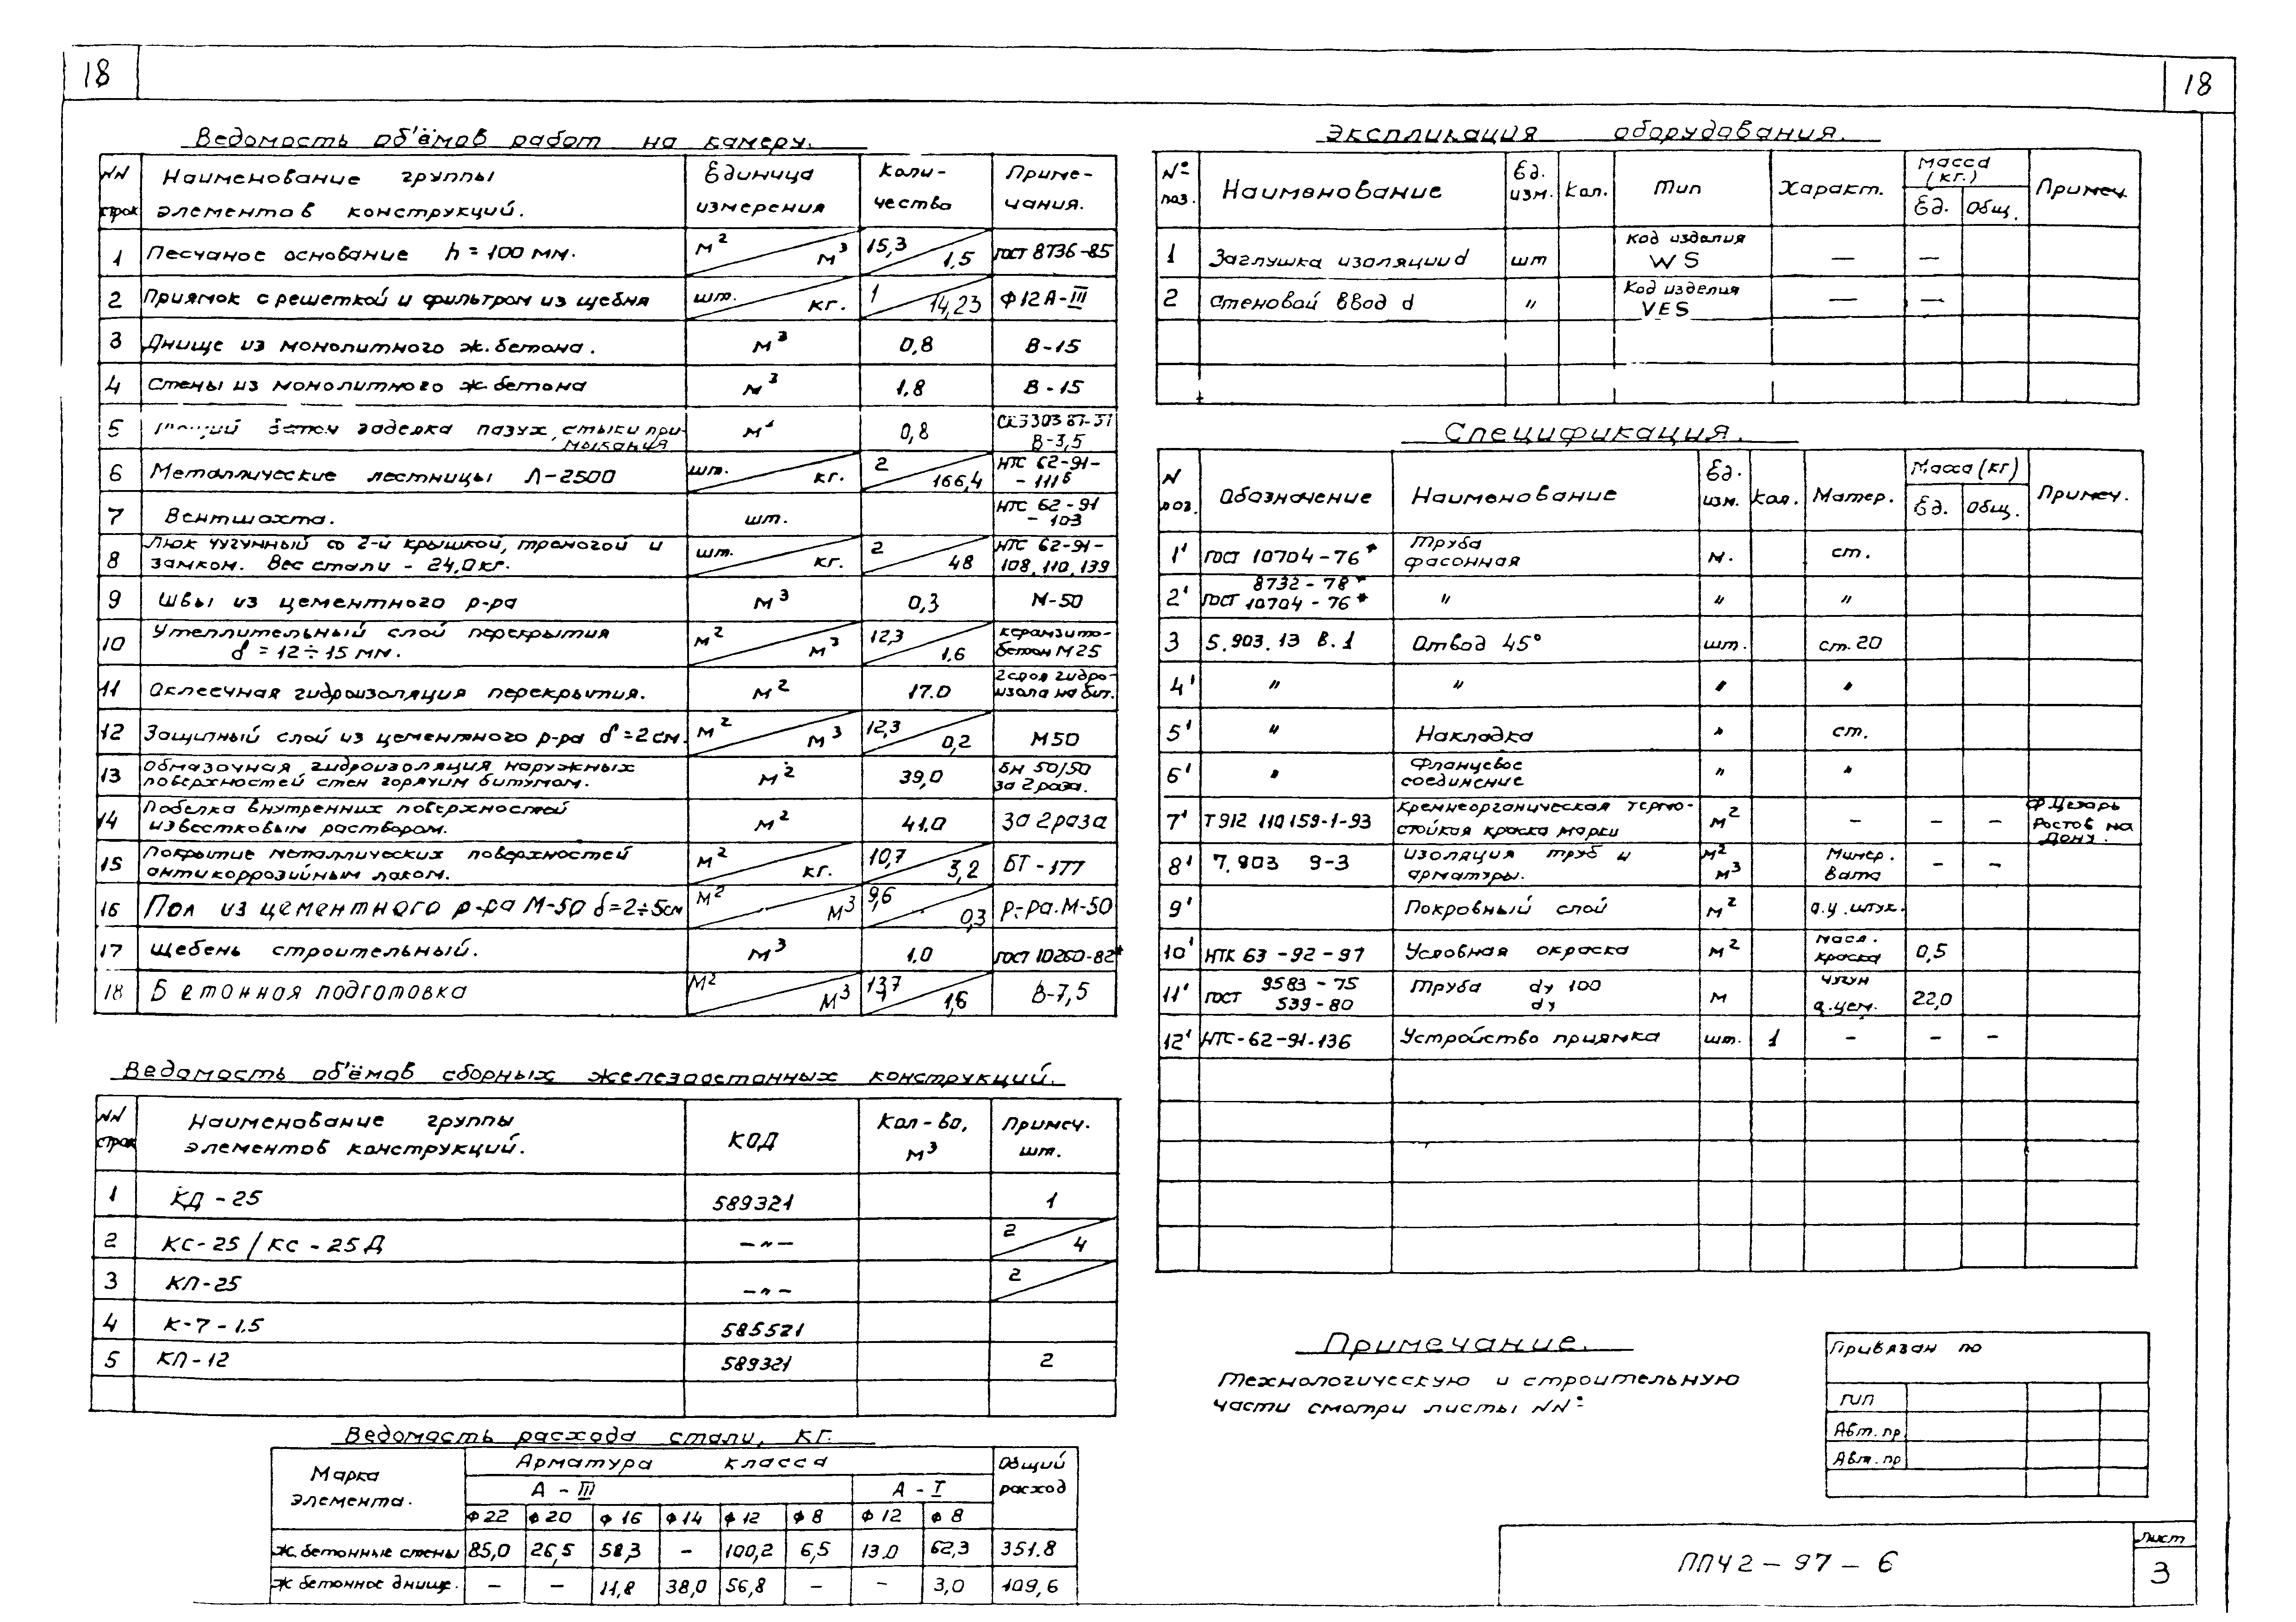 18
18
Ведомость об'ёмов работ на камеру.
NN строк | Наименование группы элементов конструкций. | Единица измерения | Коли-чество | Приме-чания.
1 Песчаное основание h = 100 мм. м² / м³ 15,3 / 1,5 ГОСТ 8736-85
2 Приямок с решеткой и фильтром из щебня шт. / кг. 1 / 14,23 Ф12А-III
3 Днище из монолитного ж.бетона. м³ 0,8 В-15
4 Стены из монолитного ж.бетона м³ 1,8 В-15
5 бетон заделка пазух, стыки при-мыкания 0,8 В-3,5
6 Металлические лестницы Л-2500 шт. / кг. 2 / 166,4 НТС 62-91-111б
7 Вентшахта. шт. НТС 62-91-103
8 Люк чугунный со 2-й крышкой, треногой и замком. Вес стали - 24,0кг. шт. / кг. 2 / 48 НТС 62-91-108, 110, 139
9 Швы из цементного р-ра м³ 0,3 М-50
10 Утеплительный слой перекрытия δ = 12÷15 мм. м² / м³ 12,3 / 1,6 керамзито-бетон М25
11 Оклеечная гидроизоляция перекрытия. м² 17.0 2 слоя гидро-изола на бит.
12 Защитный слой из цементного р-ра δ=2см. м² / м³ 12,3 / 0,2 М50
13 Обмазочная гидроизоляция наружных поверхностей стен горячим битумом. м² 39,0 БН 50/50 за 2 раза.
14 Побелка внутренних поверхностей известковым раствором. м² 41.0 за 2 раза
15 Покрытие металлических поверхностей антикоррозийным лаком. м² / кг. 10,7 / 3,2 БТ-177
16 Пол из цементного р-ра М-50 δ=2÷5см м² / м³ 9,6 / 0,3 р-ра.М-50
17 Щебень строительный. м³ 1.0 ГОСТ 10260-82*
18 Бетонная подготовка м² / м³ 13,7 / 1,6 В-7,5
Ведомость об'ёмов сборных железобетонных конструкций.
NN строк | Наименование группы элементов конструкций. | КОД | Кол-во, м³ | Примеч. шт.
1 КД-25 589321 1
2 КС-25/КС-25Д —"— 2 / 4
3 КП-25 —"— 2
4 К-7-1.5 585521
5 КП-12 589321 2
Ведомость расхода стали, кг.
Марка элемента. | Арматура класса | Общий расход
А-III | А-I
Ф22 Ф20 Ф16 Ф14 Ф12 Ф8 Ф12 Ф8
Ж.бетонные стены 85,0 26,5 58,3 - 100,2 6,5 13.0 62,3 351.8
Ж бетонное днище. - - 11,8 38,0 56,8 - - 3,0 109,6
Экспликация оборудования.
№ поз. | Наименование | Ед. изм. | Кол. | Тип | Характ. | Масса (кг.) Ед. Общ. | Примеч.
1 Заглушка изоляции d шт Код изделия WS — —
2 Стеновой ввод d " Код изделия VES — —
Спецификация.
N поз. | Обозначение | Наименование | Ед. изм. | Кол. | Матер. | Масса (кг) Ед. Общ. | Примеч.
1' ГОСТ 10704-76* Труба фасонная м. ст.
2' ГОСТ 8732-78* 10704-76* " " "
3 5.903.13 в.1 Отвод 45° шт. ст.20
4' " " " "
5' " Накладка " ст.
6' " Фланцевое соединение " "
7' Т912 110159-1-93 Кремнеорганическая термо-стойкая краска марки м² - - - Ф.Цезарь Ростов на Дону.
8' 7.903 9-3 Изоляция труб и арматуры. м² м³ Минер. вата - -
9' Покровный слой м² а.ц.штук.
10' НТК 63-92-97 Условная окраска м² масл. краска 0,5
11' ГОСТ 9583-75 539-80 Труба dу 100 dу м чугун а.цем. 22,0
12' НТС-62-91-136 Устройство приямка шт. 1 - - -
Примечание.
Технологическую и строительную
части смотри листы NN°
Привязан по
ГИП
Авт.пр.
Авт.пр
ППЧ2-97-6
Лист
3